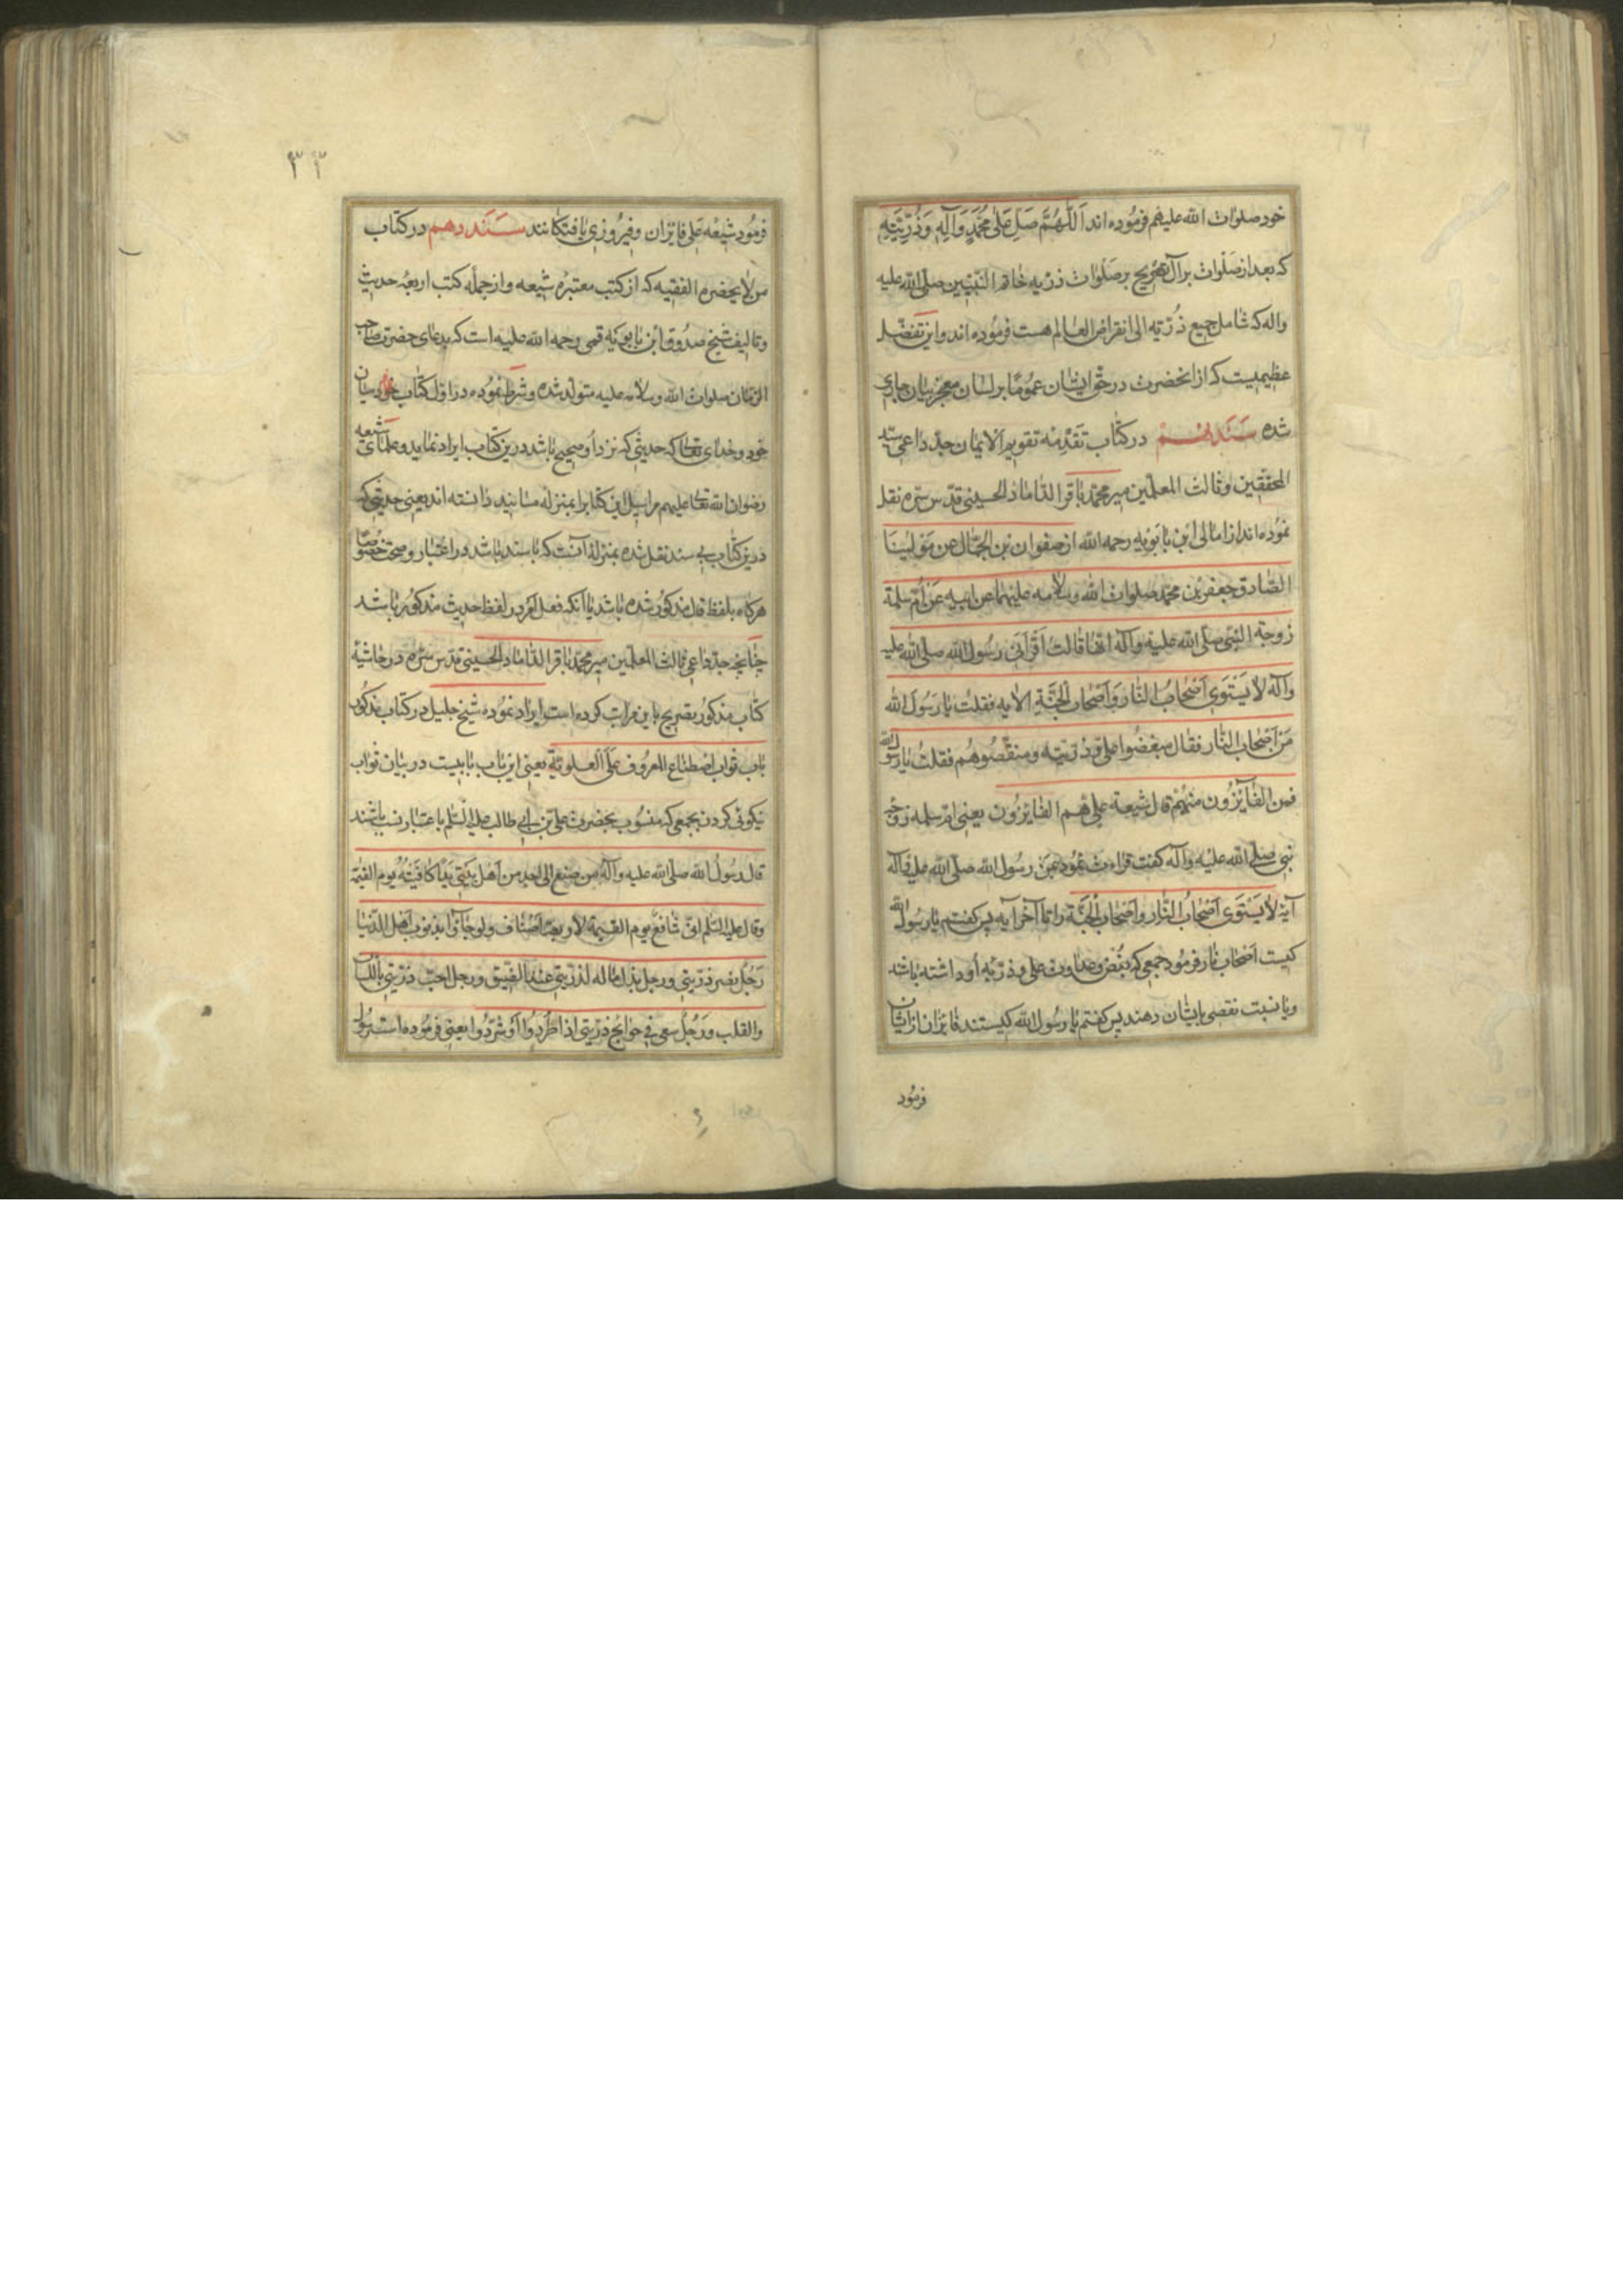 خود صلوات الله علیهم فرموده‌اند اَللّهُمَّ صَلِّ عَلی مُحَمَّدٍ وَآلِهِ وَذُرِّیَّتِهِ
که بعد از صلوات بر آل تصریح بر صلوات ذریه خاتم النبیین صلی الله علیه
واله که شامل جمیع ذریّه الی انقراض العالم هست فرموده‌اند و این تفضّل
عظیمیست که از انحضرت در حق ایشان عموماً بر لسان معجز بیان جاری
شده سَنَد نهم در کتاب تقدمه تقویم الایمان جدّ داعی سید
المحققین وثالث المعلمین میر محمد باقر الداماد الحسینی قدّس سرّه نقل
نموده‌اند از امالی ابن بابویه رحمه الله از صفوان بن الجمّال عن مولینا
الصّادق جعفر بن محمد صلوات الله وسلامه علیهما عن ابیه عن اُمّ سلمة
زوجة النبی صلّی الله علیه وآله انّها قالت اَقْرَأنی رسول الله صلّی الله علیه
وآله لا یَسْتَوی اَصْحابُ النّار وَاَصْحابُ الْجَنَّةِ الایه فقلت یا رَسُولَ الله
مَن اَصْحاب النّار فقال مبغضوا علیّ وذرّیّته ومنقّصُوهُم فقلت یا رسول الله
فمن الفائزُون منهُم قال شیعة علیّ هم الفایزون یعنی ام سلمه زوجه
نبی صلی الله علیه وآله گفت قراءت نمود بمن رسول الله صلّی الله علیه وآله
آیهٔ لا یَسْتَوی اَصْحابُ النّار واَصْحابُ الْجَنَّة را تا آخر آیه پس گفتم یا رسول الله
کیست اصحاب نار فرمود جمعی که بغض وعداوت علی وذرّیه او داشته باشد
ویا نسبت نقصی بایشان دهند پس گفتم یا رسول الله کیستند فایزان از ایشان
فرمود
٣٣
فرمود شیعه علی فایزان وفیروزی یافتگانند سَنَد دهم در کتاب
من لا یحضره الفقیه که از کتب معتبره شیعه واز جمله کتب اربعهٔ حدیث
وتالیف شیخ صدوق ابن بابویه قمی رحمه الله علیه است که بدعای حضرت صاحب
الزمان صلوات الله وسلامه علیه متولد شده وشرط نموده در اول کتاب خود میان
خود وخدای تعالی که حدیثی که نزد او صحیح باشد درین کتاب ایراد نماید وعلمای شیعه
رضوان الله تعالی علیهم مراسیل این کتابرا بمنزله مسانید دانسته‌اند یعنی حدیثی که
درین کتاب بی سند نقل شده بمنزلهٔ آنست که با سند باشد در اعتبار وصحت خصوصاً
هرگاه بلفظ قال مذکور شده باشد یا آنکه فعل امر در لفظ حدیث مذکور باشد
چنانچه جدّ داعی ثالث المعلمین میر محمد باقر الداماد الحسینی قدّس سرّه در حاشیهٔ
کتاب مذکور تصریح باین مراتب کرده است وایراد نموده شیخ جلیل در کتاب مذکور
باب ثواب اصطناع المعروف علَی العلویّة یعنی این باب بابیست در بیان ثواب
نیکوئی کردن بجمعی که منسوب بحضرت علی بن ابی طالب علیه السّلم باعتبار نسب باشند
قال رسول الله صلّی الله علیه وآله من صنع الی احد من اَهل بَیتی یَداً کافَیْتُهُ یوم القیمة
وقال علیه السّلم انّی شافعٌ یوم القیمة لاربعة اَصناف ولو جاؤا بذنوب اهل الدّنیا
رَجُلٌ نصر ذرّیتی ورجل بذل ماله لذرّیتی عند الضّیق ورجل احبّ ذرّیتی باللّسان
والقلب ورَجُلٌ سعی فی حوایج ذرّیتی اذا طُرِدُوا اَو شُرّدُوا یعنی فرموده است رسول